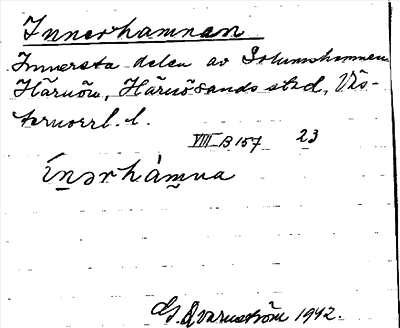 Innerhamnen
Innersta delen av
Härnön, Härnösands stad, Väs-
ternorrl. l.
VIII B 157 23
ínərhàmna
G. Qvarnström 1942.